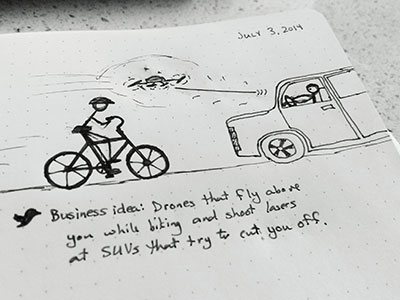 JULY 3, 2014
Business idea: Drones that fly above
you while biking and shoot lasers
at SUVs that try to cut you off.